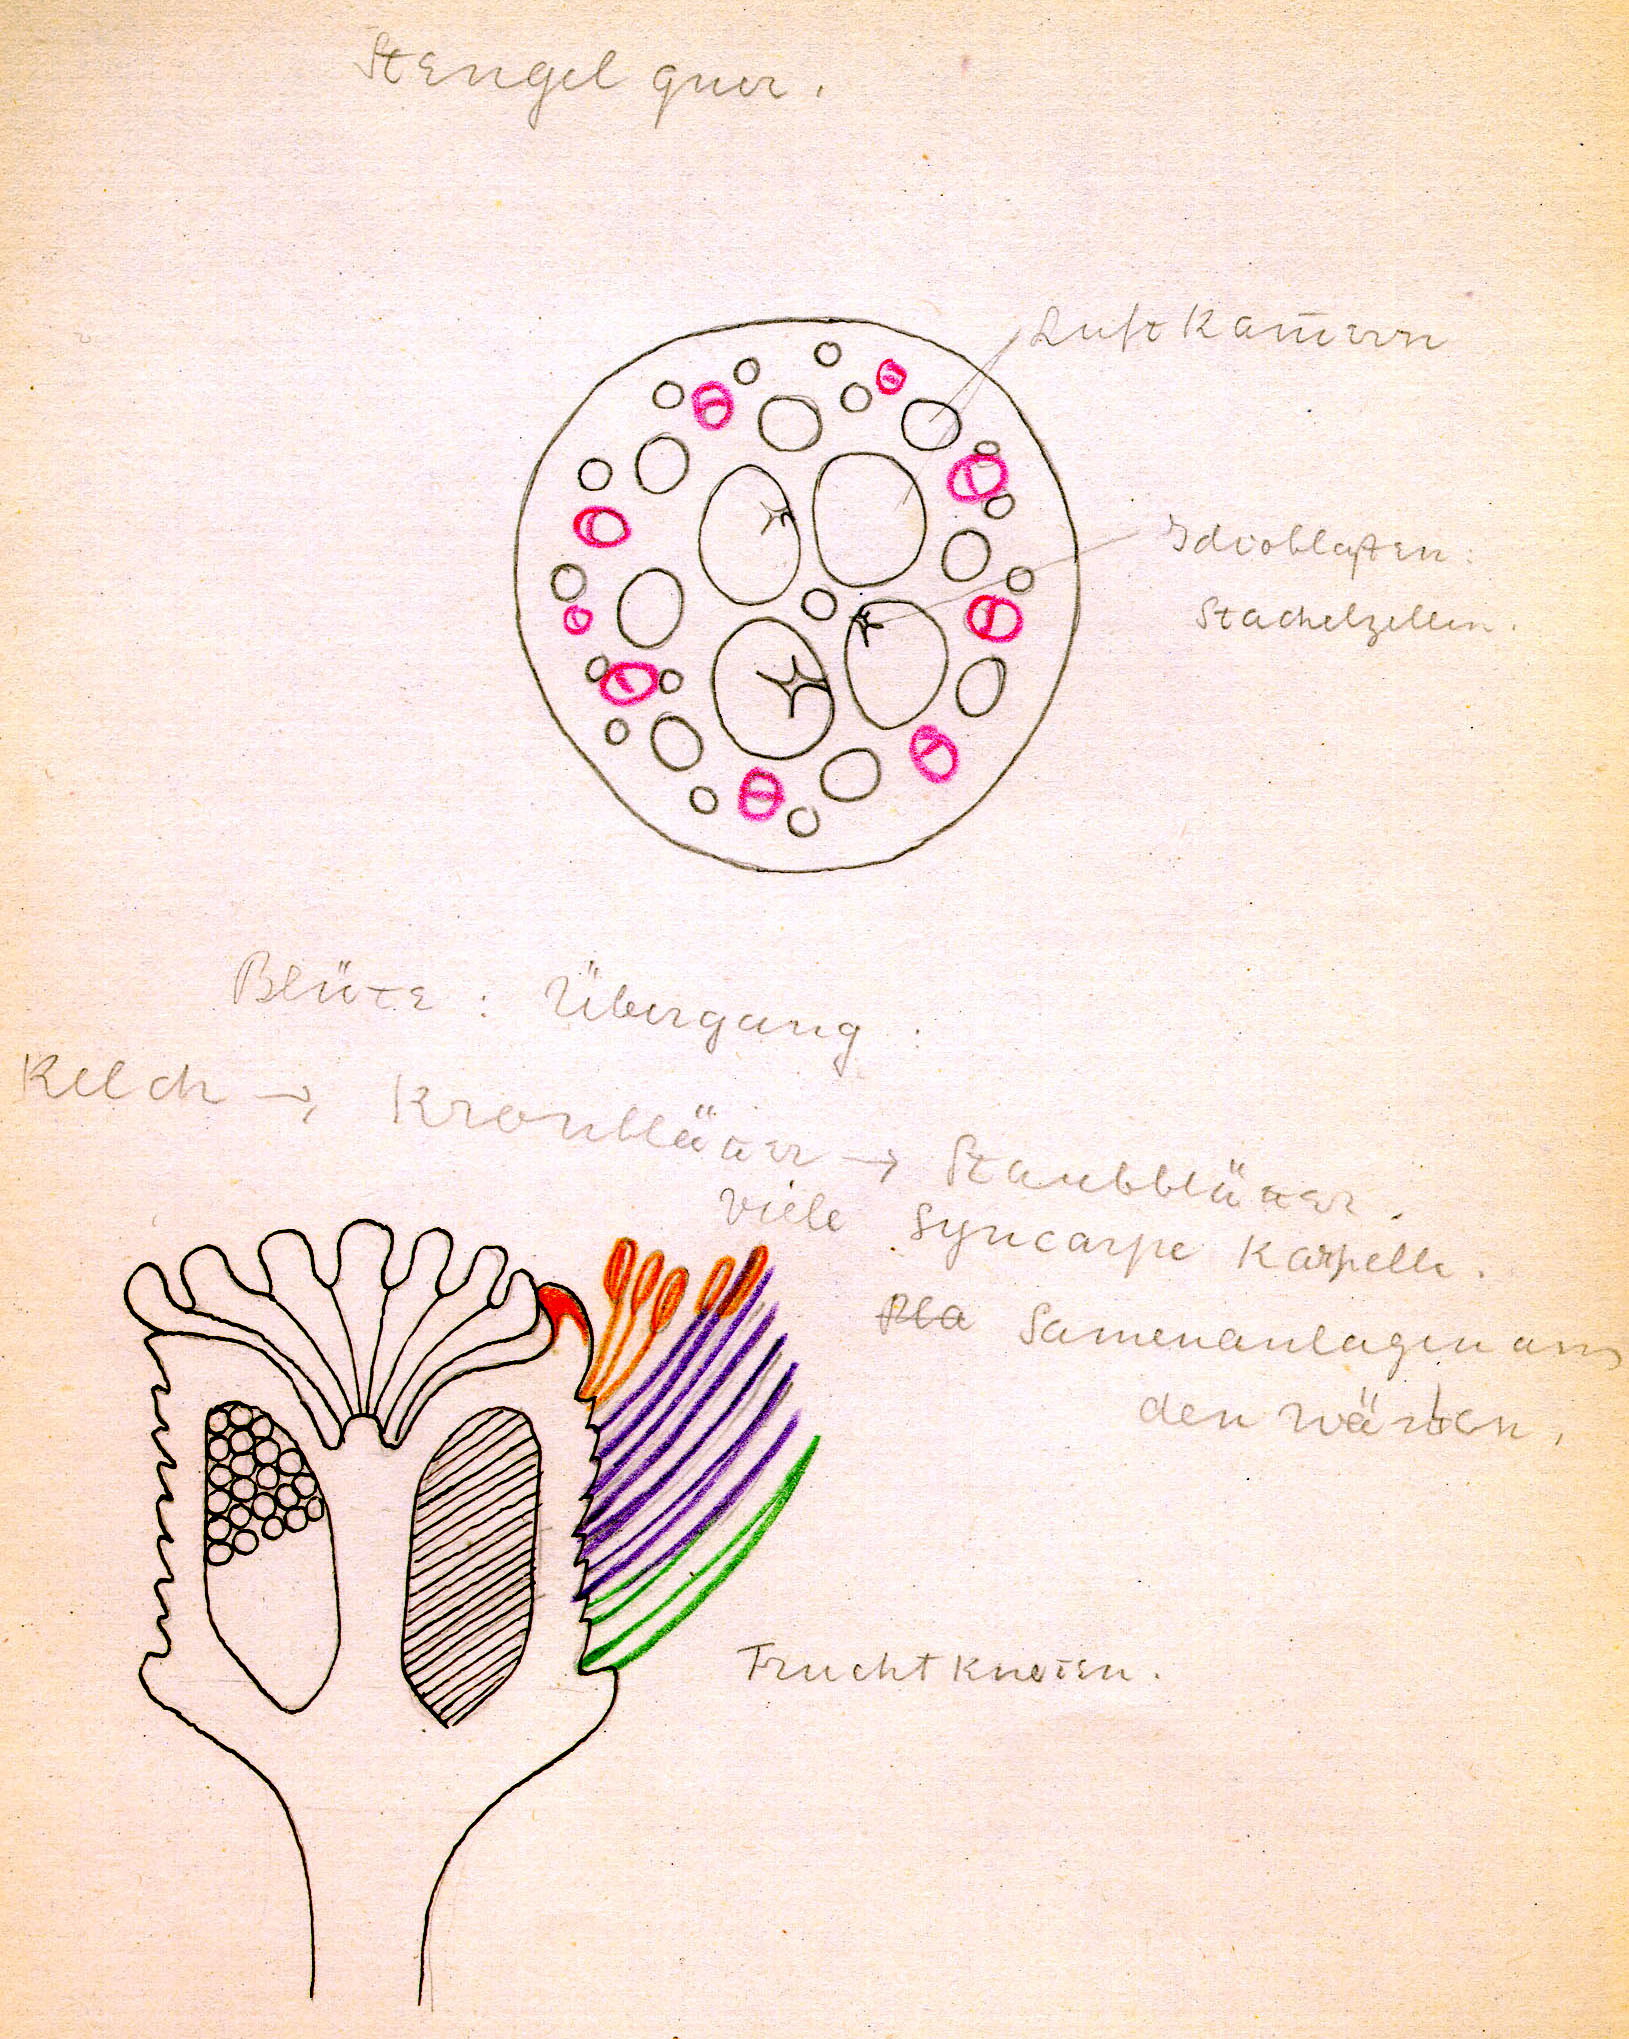 Stengel quer.
Luftkam̄ern
Idioblasten:
Stachelzellen.
Blüte : Übergang :
Kelch → Kronblätter → Staubblätter.
viele syncarpe Karpelle.
Pla Samenanlagen an
den Wänden.
Fruchtknoten.